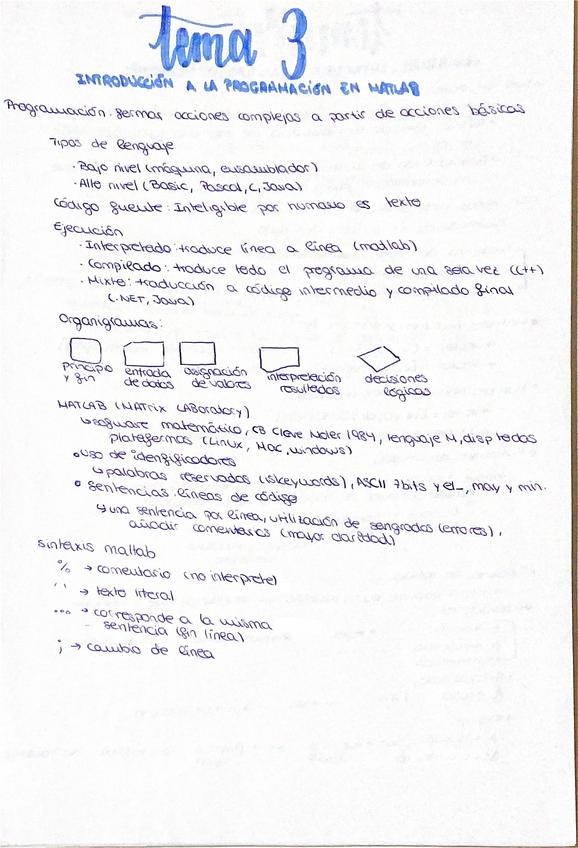 tema 3
INTRODUCCIÓN A LA PROGRAMACIÓN EN MATLAB
Programación: formar acciones complejas a partir de acciones básicas
Tipos de lenguaje
· Bajo nivel (máquina, ensamblador)
· Alto nivel (Basic, Pascal, C, Java)
Código fuente: Inteligible por humano es texto
Ejecución
· Interpretado: traduce línea a línea (matlab)
· Compilado: traduce todo el programa de una sola vez (C++)
· Mixto: traducción a código intermedio y compilado final
(.NET, Java)
Organigramas:
principio entrada asignación interpretación decisiones
y fin de datos de valores resultados lógicas
MATLAB (MATrix LABoratory)
↳ software matemático, Cleve Moler 1984, lenguaje M, disp todas
plataformas (Linux, Mac, windows)
• uso de identificadores
↳ palabras reservadas (iskeywords), ASCII 7bits y el _, may y min.
• sentencias: líneas de código
↳ una sentencia por línea, utilización de sangrados (errores),
añadir comentarios (mayor claridad)
sintaxis matlab
% → comentario (no interprete)
' ' → texto literal
... → corresponde a la misma
sentencia (fin línea)
; → cambio de línea